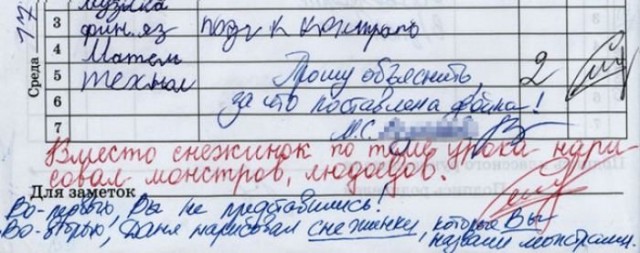 Музыка
17
Среда
3 фин. яз подг к контрольно
4 Матем
5 технол Прошу объяснить, 2
6 за что поставлена двойка!
7 М.С.
Вместо снежинок по теме урока нари
совал монстров, людоедов.
Для заметок
Во-первых, Вы не представились!
Во-вторых, Даня нарисовал снежинки, которые Вы
назвали монстрами.